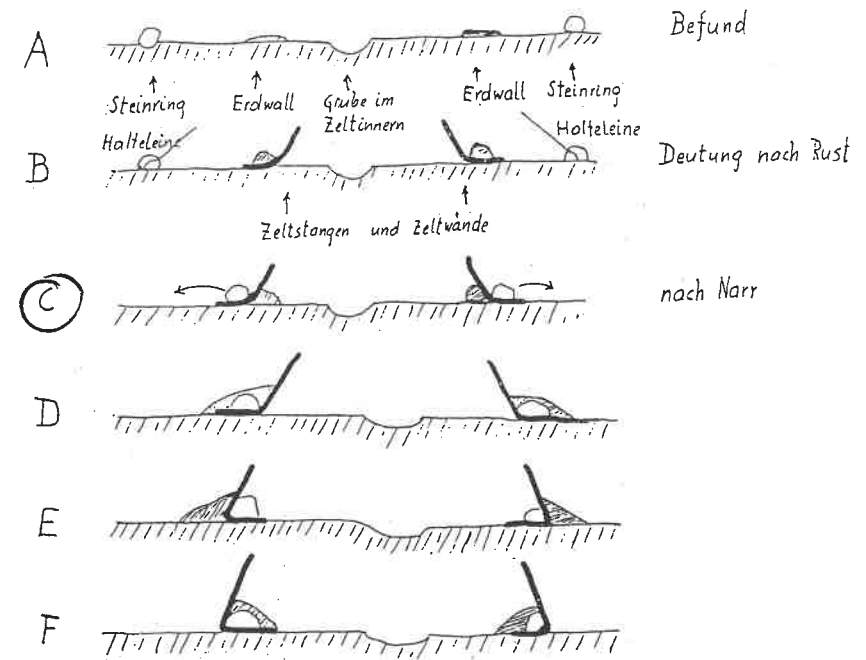 A
Befund
Steinring
Erdwall
Grube im
Zeltinnern
Erdwall
Steinring
Halteleine
Holteleine
B
Deutung nach Rust
Zeltstangen und Zeltwände
C
nach Narr
D
E
F